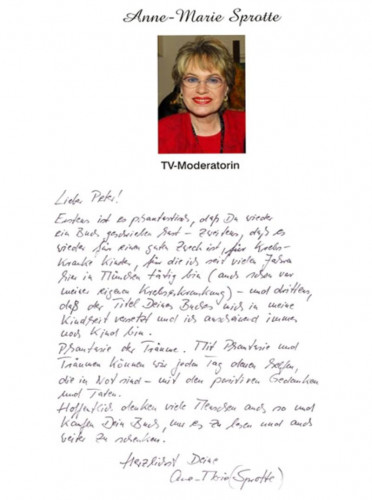 Anne-Marie Sprotte
TV-Moderatorin
Lieber Peter!
Erstens ist es phantastisch, daß Du wieder
ein Buch geschrieben hast - zweitens, daß es
wieder für einen guten Zweck ist, für krebs-
kranke Kinder, für die ich seit vielen Jahren
hier in München tätig bin (auch schon vor
meiner eigenen Krebserkrankung) - und drittens,
daß der Titel Deines Buches mich in meine
Kindheit versetzt und ich anscheinend immer
noch Kind bin.
Phantasie der Träume. Mit Phantasie und
Träumen können wir jeden Tag denen helfen,
die in Not sind - mit den positiven Gedanken
und Taten.
Hoffentlich denken viele Menschen auch so und
kaufen Dein Buch, um es zu lesen und auch
weiter zu schenken.
Herzlichst Deine
Anne-Marie (Sprotte)